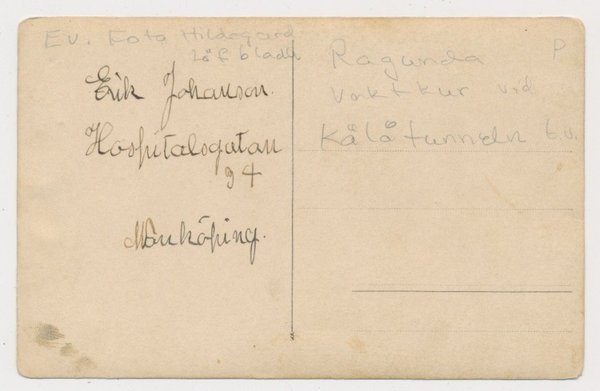 Ev. Foto Hildegard
Löfbladh
Erik Johanson.
Hospitalsgatan
94
Ragunda
P
Vaktkur vid
Kålåtunneln t.v.